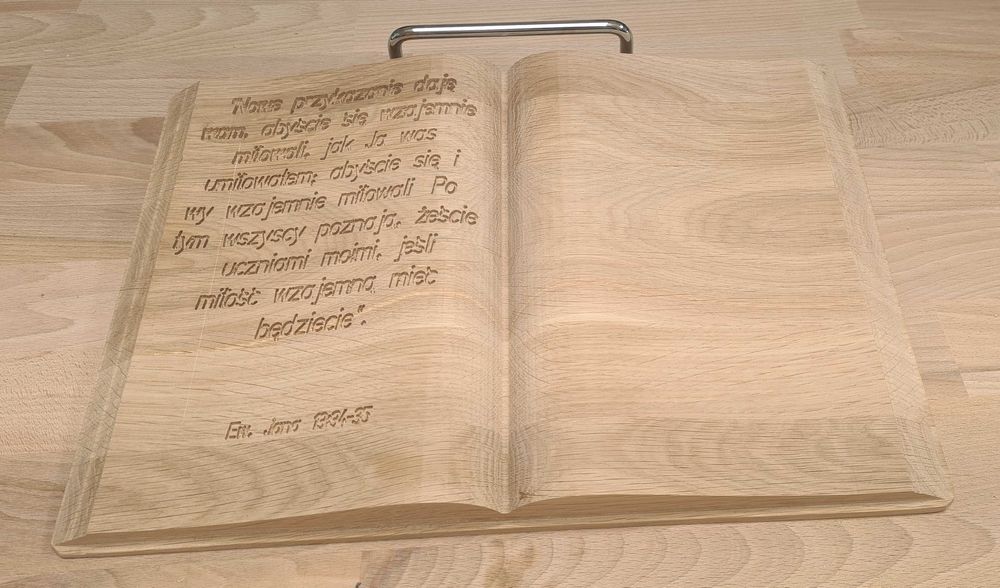 "Nowe przykazanie daję
wam, abyście się wzajemnie
miłowali, jak Ja was
umiłowałem; abyście się i
wy wzajemnie miłowali Po
tym wszyscy poznają, żeście
uczniami moimi, jeśli
miłość wzajemną mieć
będziecie".
Ew. Jana 13:34-35